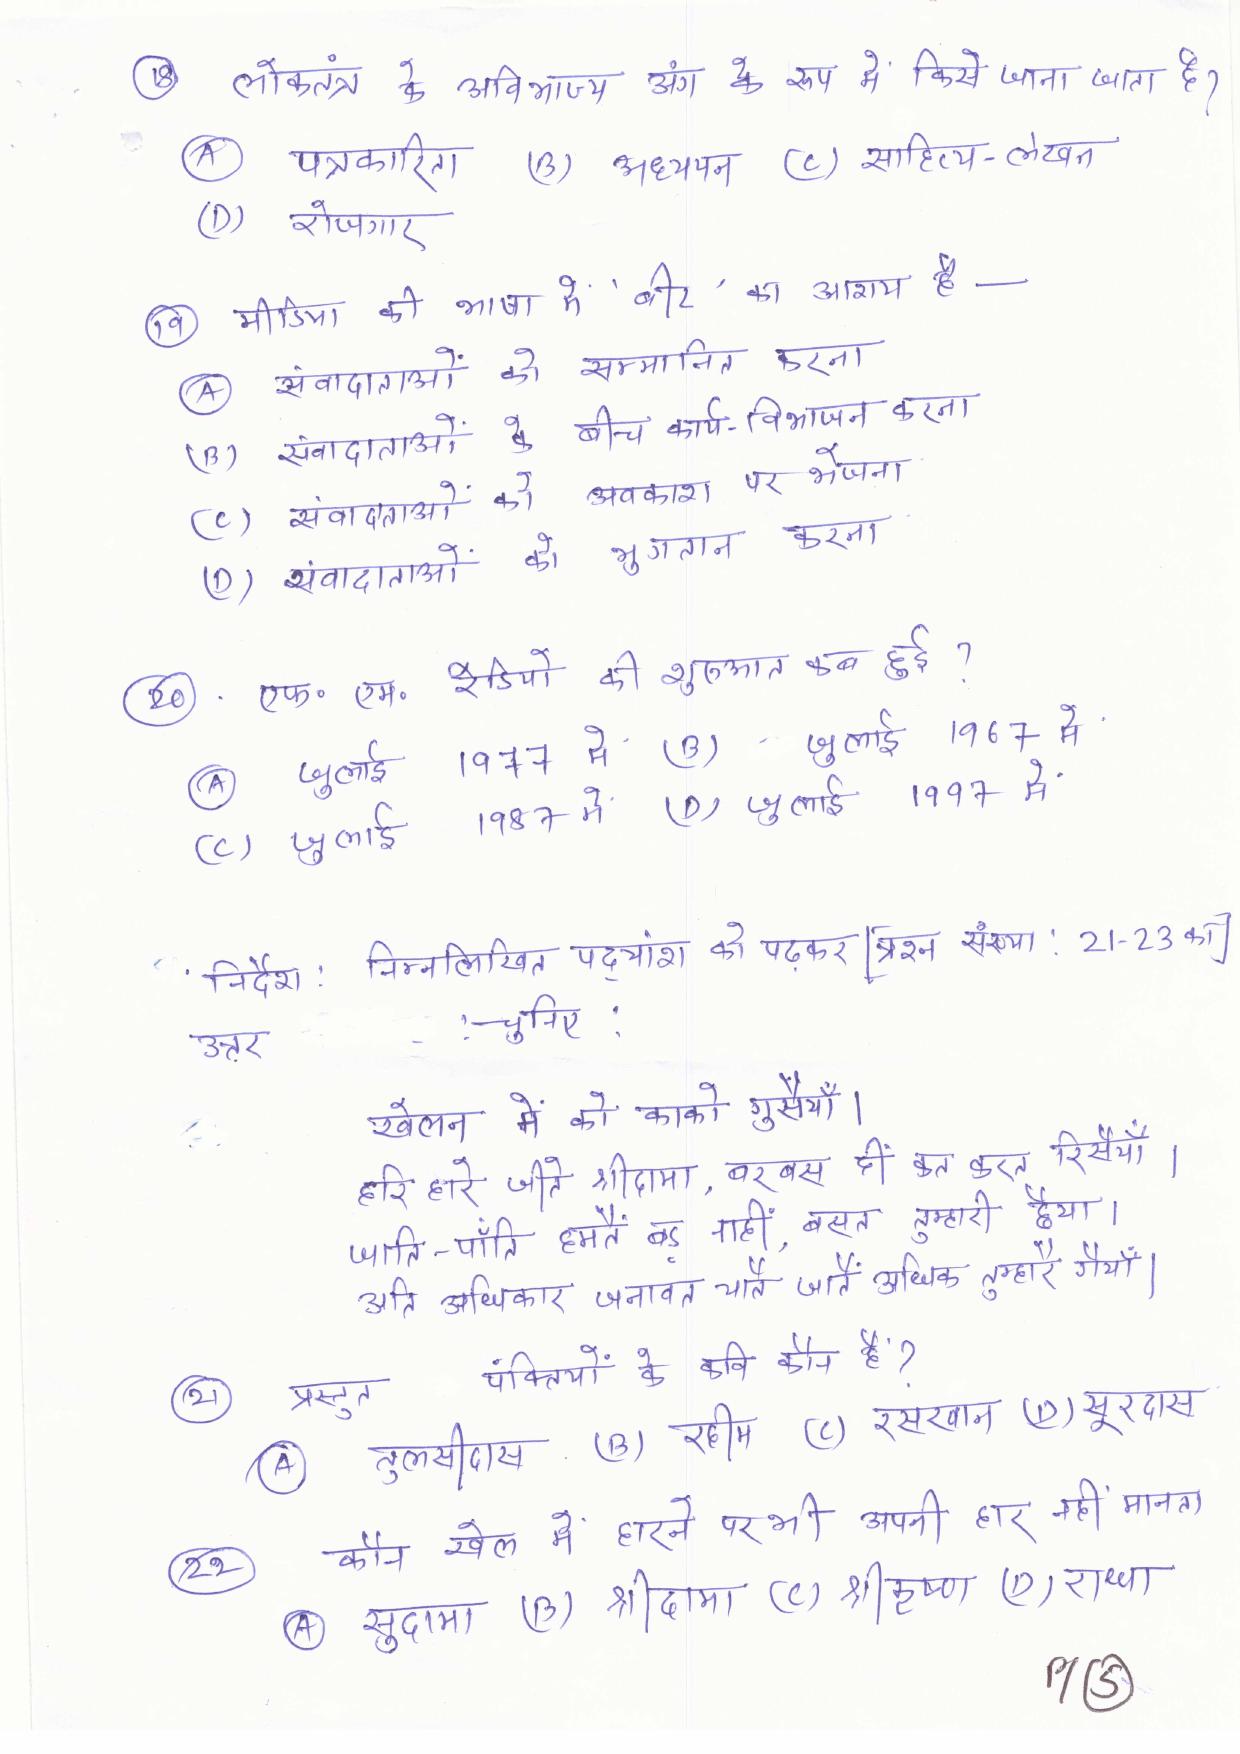 18 लोकतंत्र के अविभाज्य अंग के रूप में किसे जाना जाता है?
(A) पत्रकारिता (B) अध्ययन (C) साहित्य-लेखन
(D) रोजगार
19 मीडिया की भाषा में 'बीट' का आशय है —
(A) संवादाताओं को सम्मानित करना
(B) संवादाताओं के बीच कार्य-विभाजन करना
(C) संवादाताओं को अवकाश पर भेजना
(D) संवादाताओं को भुगतान करना
20. एफ॰ एम॰ रेडियो की शुरुआत कब हुई ?
(A) जुलाई 1977 में (B) जुलाई 1967 में
(C) जुलाई 1987 में (D) जुलाई 1997 में
निर्देश: निम्नलिखित पद्यांश को पढ़कर [प्रश्न संख्या: 21-23 का]
उत्तर चुनिए :
खेलन में को काको गुसैयाँ।
हरि हारे जीते श्रीदामा, बरबस हीं कत करत रिसैयाँ।
जाति-पाँति हमतैं बड़ नाहीं, बसत तुम्हारी छैया।
अति अधिकार जनावत यातैं जातैं अधिक तुम्हारै गैयाँ।
21 प्रस्तुत पंक्तियों के कवि कौन हैं?
(A) तुलसीदास (B) रहीम (C) रसखान (D) सूरदास
22 कौन खेल में हारने पर भी अपनी हार नहीं मानता
(A) सुदामा (B) श्रीदामा (C) श्रीकृष्ण (D) राधा
P/5